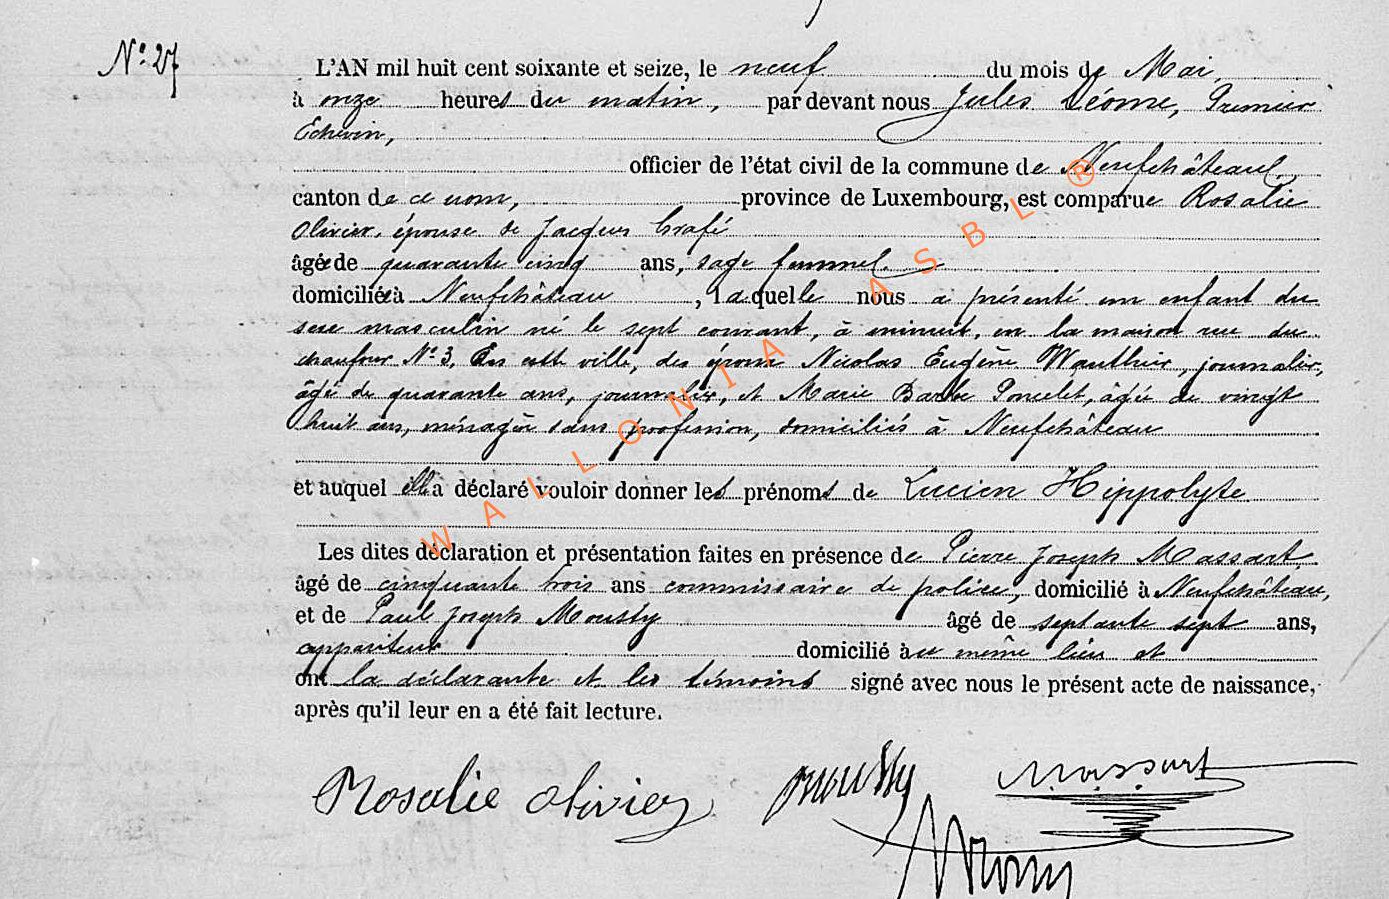 N° 27
L'AN mil huit cent soixante et seize, le neuf du mois de Mai,
à onze heures du matin, par devant nous Jules Déome, Premier
Echevin,
officier de l'état civil de la commune de Neufchâteau,
canton de ce nom, province de Luxembourg, est comparue Rosalie
Olivier, épouse de Jacques Crafé
âgée de quarante cinq ans, sage femme
domiciliée à Neufchâteau, laquelle nous a présenté un enfant du
sexe masculin né le sept courant, à minuit, en la maison rue du
chaufour N° 3, En cette ville, des époux Nicolas Eugène Wauthier, journalier,
âgé de quarante ans, journalier, et Marie Barbe Poncelet, âgée de vingt
huit ans, ménagère sans profession, domiciliés à Neufchâteau
et auquel elle a déclaré vouloir donner les prénoms de Lucien Hippolyte
Les dites déclaration et présentation faites en présence de Pierre Joseph Massart,
âgé de cinquante trois ans commissaire de police, domicilié à Neufchâteau,
et de Paul Joseph Mousty âgé de septante sept ans,
appariteur domicilié au même lieu et
ont la déclarante et les témoins signé avec nous le présent acte de naissance,
après qu'il leur en a été fait lecture.
Rosalie Olivier mousty Massart
WALLONIA ASBL ®